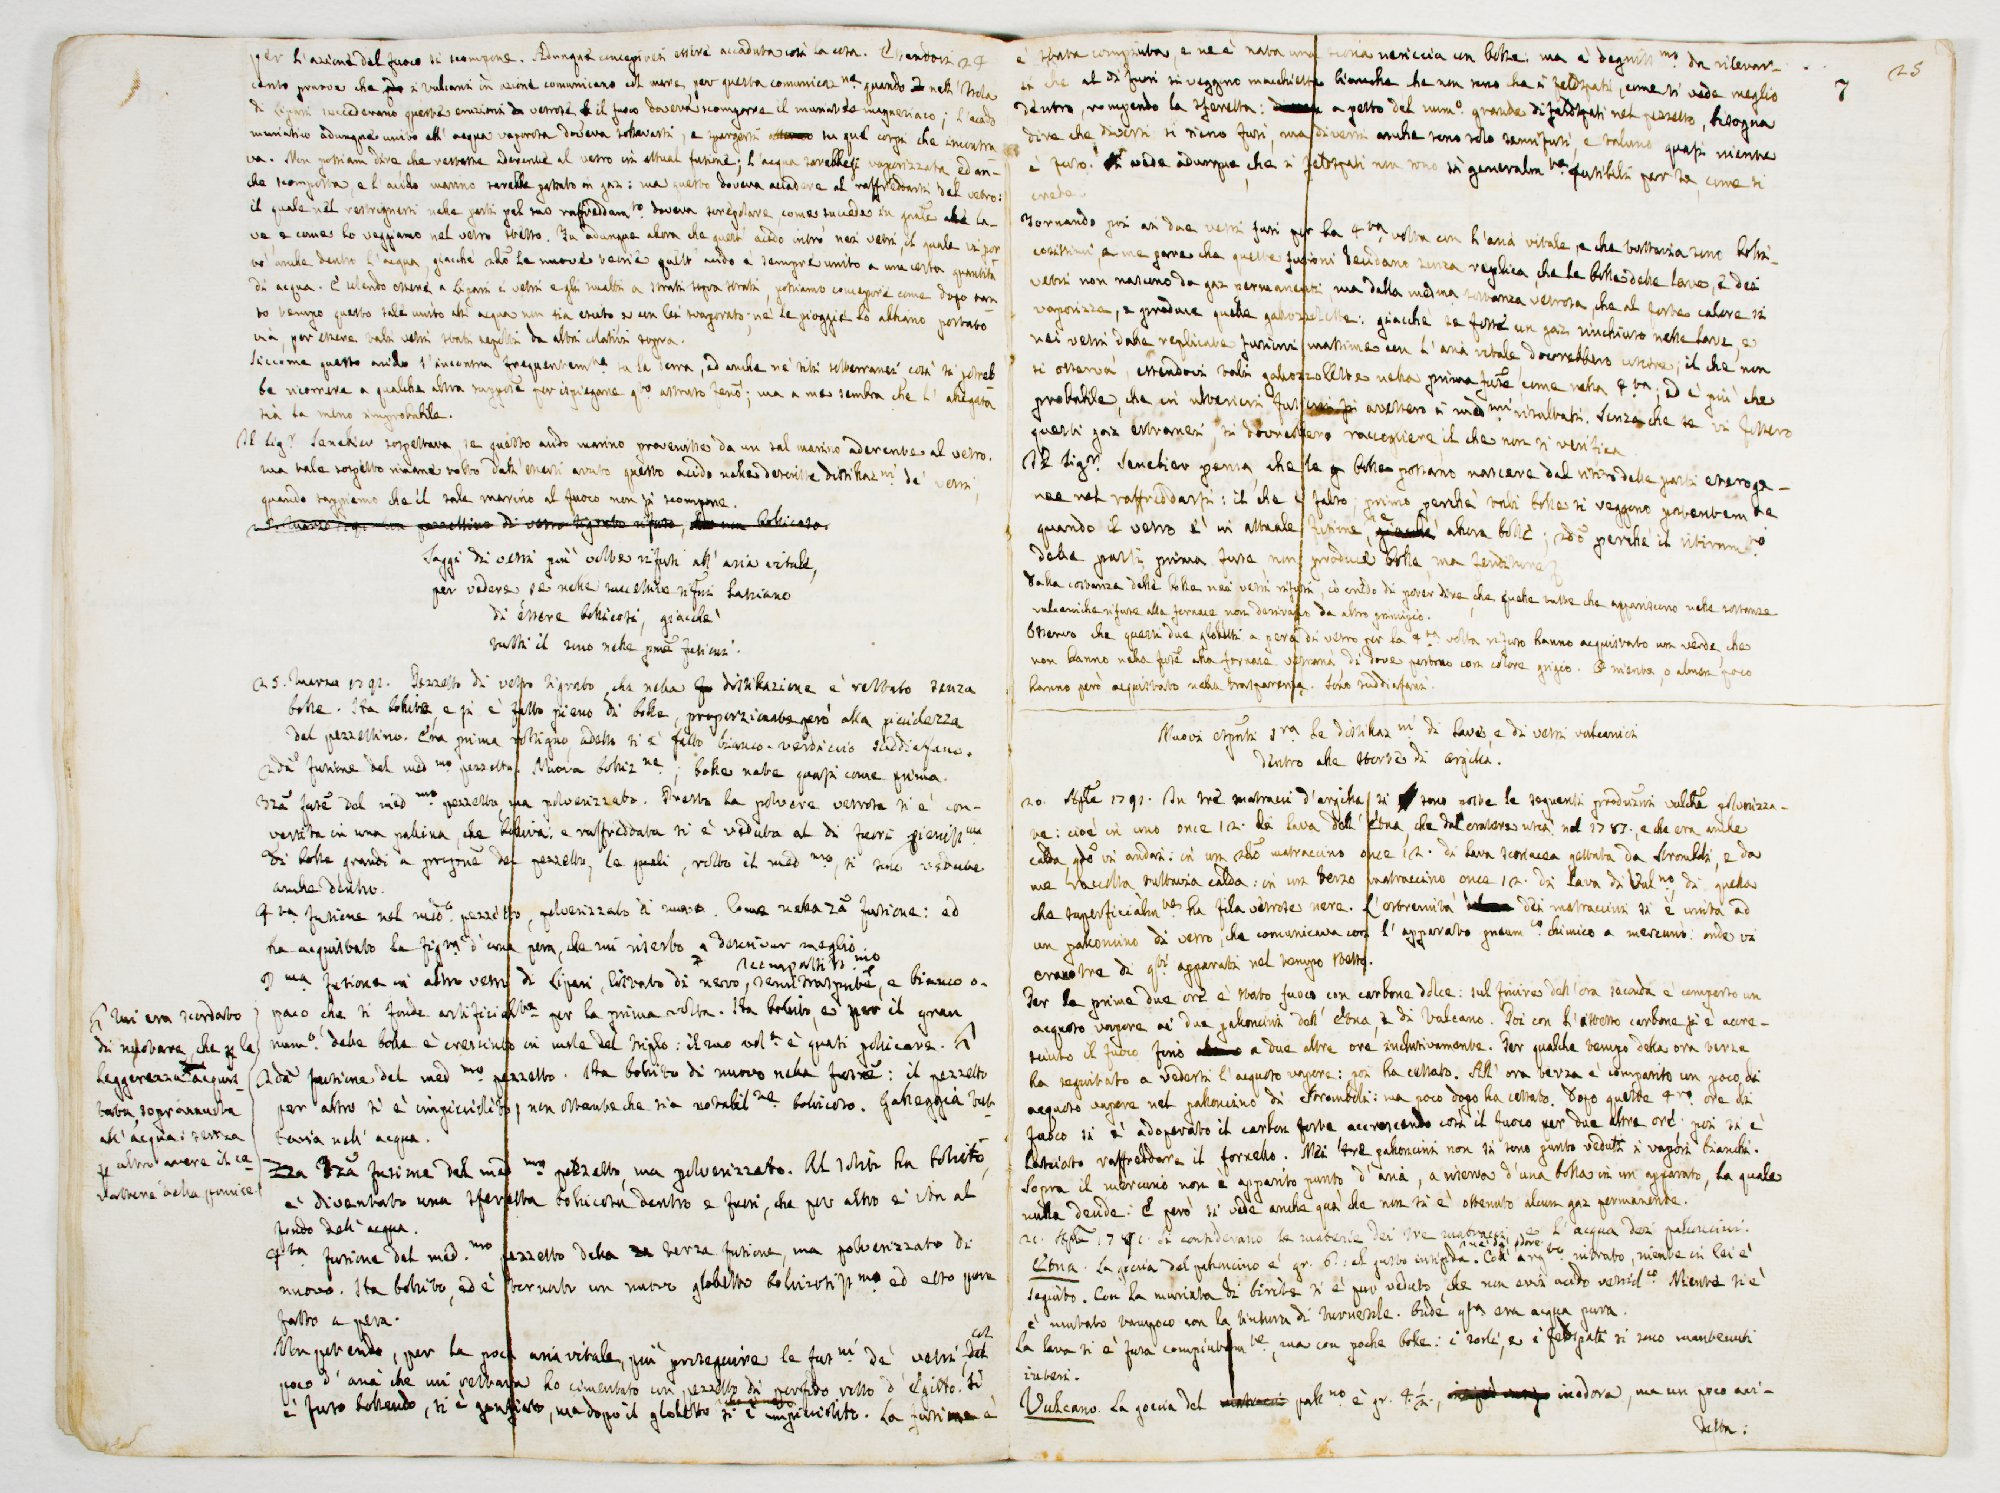 per l'azione del fuoco si scompone. Adunque concepirei essere accaduta così la cosa. Essendovi 24
cento pruove che i vulcani in azione comunicano col mare, per questa comunicaz.ne quando nell'Isola
di Lipari succedevano queste eruzioni vetrose il fuoco doveva scomporre il muriato magnesiaco; l'acido
muriatico adunque unito all'acqua vaporosa doveva sollevarsi, e spargersi su que' corpi che incontra
va. Non possiam dire che restasse aderente al vetro in attual fusione; l'acqua sarebbesi vaporizzata ed an-
che scomposta, e l'acido marino sarebbe passato in gaz: ma questo doveva accadere al raffreddarsi del vetro:
il quale nel restrignersi nelle parti pel suo raffreddam.to doveva screpolare, come succede in
ve e come lo veggiamo nel vetro stesso. Fu adunque allora che quest'acido entrò nei vetri, il quale vi por
tò anche dentro l'acqua, giacchè le nuove teorie quest'acido è sempre unito a una certa quantità
di acqua. E solendo essere a Lipari i vetri e gli smalti a strati sopra strati, possiamo concepire come dopo tan
to tempo questo sale unito all'acqua non sia uscito e con lei svaporato; nè le pioggie lo abbiano portato
via, per essere tali vetri strati sepolti da altri sopra.
Siccome questo acido s'incontra frequentem.te su la terra, ed anche ne' siti sotterranei così si potreb
be ricorrere a qualche altra per ispiegare q.to astruso feno; ma a me sembra che l'allegata
sia la meno improbabile.
Il Sig.r Senebier sospettava, se questo acido marino provenisse da un sal marino aderente al vetro.
ma tale sospetto rimane tolto dall'essersi avuto questo acido nelle descritte distillaz.ni de' vetri,
quando sappiamo che il sale marino al fuoco non si scompone.
pezzettino di vetro tigrato rifuso, bollicoso.
Saggi di vetri più volte rifusi all'aria vitale,
per vedere se nelle successive rifusi lasciano
di essere bollicosi, giacchè
tutti il sono nelle pme fusioni.
25. Marzo 1791. Pezzetto di vetro tigrato, che nella distillazione è restato senza
bolle. Ha bollito, e si è fatto pieno di bolle, proporzionate però alla picciolezza
del pezzettino. Era prima adesso si è fatto bianco-verdiccio suddiafano.
2da fusione del med.mo pezzetto. Nuova bolliz.ne; bolle nate quasi come prima.
3za fuse del med.mo pezzetto, ma polverizzato. Presto la polvere vetrosa si è con-
vertita in una pallina, che bolliva: e raffreddata si è veduta al di fuori pieniss.ma
di bolle grandi a del pezzetto, le quali, rotto il med.mo, si sono vedute
anche dentro.
4ta fusione nel medo pezzetto, polverizzato di nuovo. Come nella 3a fusione: ed
ha acquistato la figra d'una pera, che mi riserbo a descriver meglio.
1ma fusione in altro vetro di Lipari, listato di nero, e bianco o-
paco che si fonde per la prima volta. Ha bollito, e però il gran
num.o delle bolle è cresciuto in mole del triplo: il suo vol.e è quasi pollicare.
2da fusione del med.mo pezzetto. Ha bollito di nuovo nella fusne: il pezzetto
per altro si è impicciolito, non ostante che sia notabil.te bollicoso. Galleggia tut-
tavia nell'acqua.
3za fusione del med.mo pezzetto, ma polverizzato. Al solito ha bollito,
è diventato una sferetta bollicosa dentro e fuori, che per altro è ita al
fondo dell'acqua.
4ta fusione del med.mo pezzetto della terza fusione, ma polverizzato di
nuovo. Ha bollito, ed è tornato un nuovo globetto bollicosiss.mo ed esso pure
fatto a pera.
Non potendo, per la poca aria vitale, più proseguire le fus.ni de' vetri, col
poco d'aria che mi restava ho cimentato un pezzetto di porfido rosso d'Egitto. Si
è fuso bollendo, si è gonfiato, ma dopo il globetto si è impicciolito. La fusione è
Mi era scordato
di notare, che la
leggerezza
soprannuota
all'acqua: senza
per altro avere il ca-
rattere della pomice
25
7
è stata compiuta, e ne è nata una scoria nericcia con bolle. ma è degniss.mo da rilevar-
si che al di fuori si veggono macchiette bianche che non sono che i feldspati, come si vede meglio
dentro, rompendo la sferetta: a petto del num.o grande di feldspati nel pezzetto, bisogna
dire che diversi si sieno fusi, ma diversi anche sono solo semifusi, e taluno quasi niente
è fuso. Si vede adunque, che i feldspati non sono sì generalm.te fusibili per sè, come si
crede.
Tornando poi ai due vetri fusi per la 4.ta volta con l'aria vitale, e che tuttavia sono bolli-
cosissimi e me pare che queste fusioni decidano senza replica, che le bolle delle lave, e dei
vetri non nascono da gaz permanenti ma dalla medma sostanza vetrosa, che al forte calore si
vaporizza, e produce quelle gallozzolette: giacchè se fosse un gaz rinchiuso nelle lave, e
nei vetri dalle replicate fusioni massime con l'aria vitale dovrebbero uscire, il che non
si osserva, essendovi tali gallozzolette nella prima fuse, come nella 4.ta; ed è più che
probabile, che in ulteriori fusioni si avessero i medmi risultati. Senza che se vi fossero
questi gaz estranei, si dovrebbero raccogliere il che non si verifica.
Il Sigr. Senebier pensa, che le bolle possano nascere dal ritiro delle parti eteroge-
nee nel raffreddarsi: il che è falso, primo perchè tali bolle si veggono potentem.te
quando il vetro è in attuale fusione, e allora bolle; 2do perchè il ritiram.to
delle parti, prima fuse non produce bolle, ma fenditure.
Dalla costanza delle bolle nei vetri rifusi, io credo di poter dire, che quelle tutte che appariscono nelle sostanze
vulcaniche rifuse alla fornace non derivano da altro principio.
Osservo che questi due globetti a pera di vetro per la 4.ta volta rifuso hanno acquistato un verde, che
non hanno nella fuse alla fornace vetraria di dove sortono con colore grigio. O niente, o almeno poco
hanno però acquistato nella trasparenza. Sono suddiafani.
Nuovi esperti s.ra le distillaz.ni di lave, e di vetri vulcanici
dentro alle storte di argilla.
20. Aple 1791. In tre matracci d'argilla si sono poste le seguenti produzni vulche polverizza-
te: cioè in uno once 12. di lava dell'Etna, che dal cratere uscì nel 1787. e che era anche
calda qdo vi andai: in un 2do matraccino once 12. di lava scoriacea gettata da Stromboli, e da
me raccolta tuttavia calda: in un terzo matraccino once 12. di lava di Vulno, di quella
che superficialm.te ha fila vetrose nere. L'estremità dei matraccini si è unita ad
un palloncino di vetro, che comunicava con l'apparato pneum.co chimico a mercurio: onde vi
erano tre di q.ti apparati nel tempo stesso.
Per le prime due ore è stato fuoco con carbone dolce: sul finire dell'ora seconda è comparso un
acquoso vapore ai due palloncini dell'Etna, e di Vulcano. Poi con l'istesso carbone si è accre-
sciuto il fuoco fino a due altre ore inclusivamente. Per qualche tempo della ora terza
ha seguitato a vedersi l'acquoso vapore: poi ha cessato. All'ora terza è comparito un poco di
acquoso vapore nel palloncino di Stromboli: ma poco dopo ha cessato. Dopo queste 4.ro ore di
fuoco si è adoperato il carbon forte accrescendo così il fuoco per due altre ore: poi si è
lasciato raffreddare il fornello. Nei tre palloncini non si sono punto veduti i vapori bianchi.
Sopra il mercurio non è apparito punto d'aria, a riserva d'una bolla in un apparato, la quale
nulla decide. E però si vede anche quà che non si è ottenuto alcun gaz permanente.
21. Aple 1791. Si considerano le materie dei tre matracci, e l'acqua dei palloncini.
Etna. La goccia del palloncino è gr. 6: al gusto insipida. Coll' nitrato, niente in lei è
seguito. Con la muriata di barite si è pur veduto, che non eravi acido vetriol.co Niente si è
è mutato tampoco con la tintura di turnesole. Onde q.sta era acqua pura.
La lava si è fusa compiutam.te, ma con poche bolle: i sorli, e i feldspati si sono mantenuti
interi.
Vulcano. La goccia del pall.no è gr. 4 1/2., inodora, ma un poco aci-
detta: